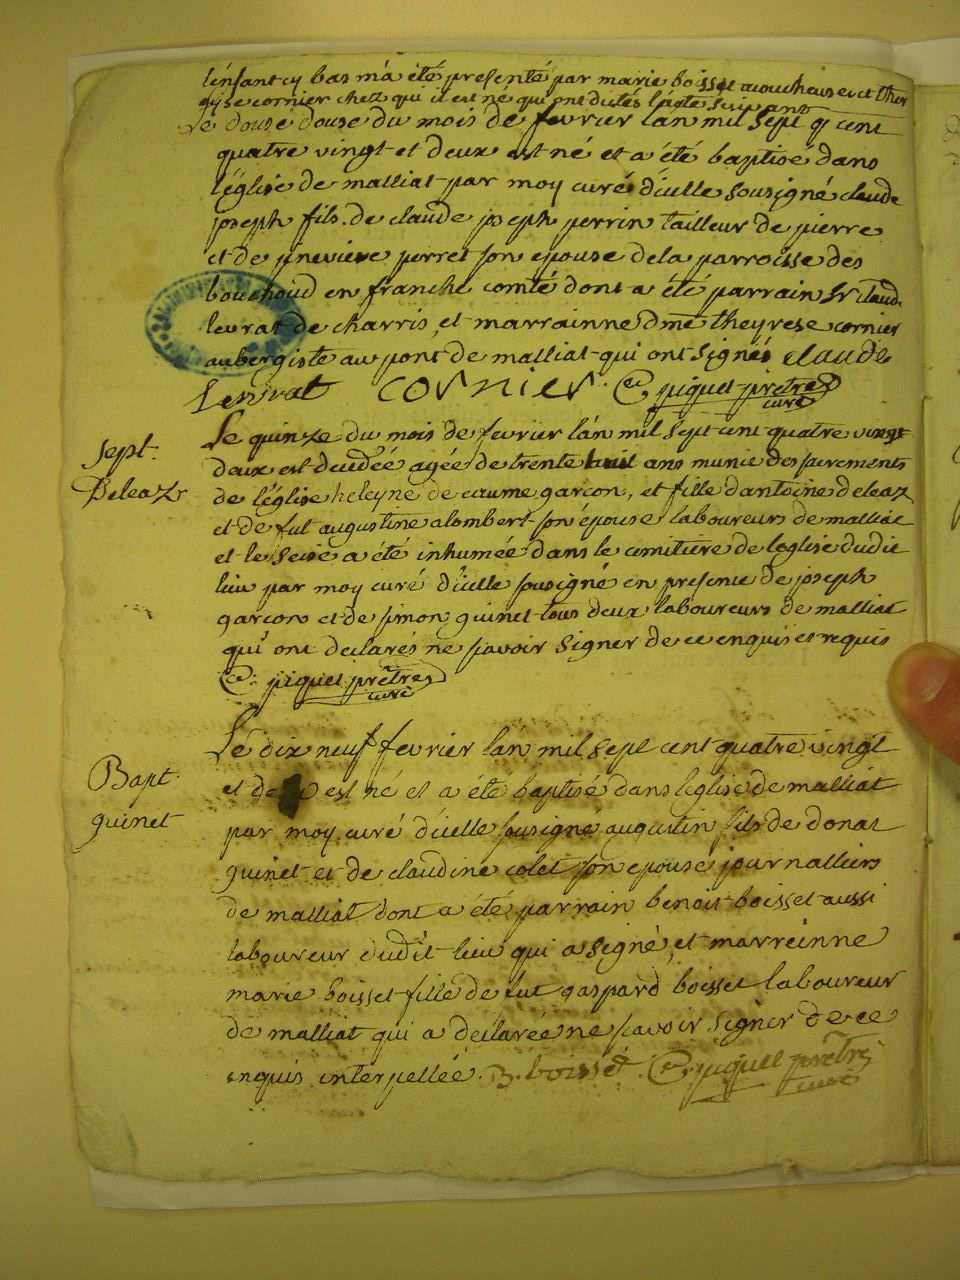 l'enfant cy bas m'a été presenté par marie boisset acoucheuse et ther
cornier chez qui il est né qui ont dictés l'acte suivant
Le douse douse du mois de fevrier l'an mil sept cent
quatre vingt et deux est né et a été baptisé dans
l'église de malliat par moy curé d'icelle sousigné claude
joseph fils de claude joseph perrin tailleur de pierre
et de jenevieve perret son epouse de la parroisse des
bouchoud en franche comté dont a été parrain Sr claude
levrat de charris, et marrainne dme theyrese cornier
aubergiste au pont de malliat qui ont signés claude
Levrat cornier piquet prêtre
curé
Sept.
Deleaz
Le quinze du mois de fevrier l'an mil sept cent quatre vingt
deux est decedée agée de trente huit ans munie des sacrements
de l'église heleyne de eaume garçon, et fille d'antoine deleaz
et de fut augustine alombert son épouse laboureurs de malliat
et le seise a été inhumée dans le cemitiere de l'eglise dudit
lieu par moy curé d'icelle sousigné en presence de joseph
garçon et de simon guinet tous deux laboureurs de malliat
qui ont declarés ne savoir signer de ce enquis et requis
piquet prêtre
curé
Bapt.
guinet
Le dix neuf fevrier l'an mil sept cent quatre vingt
et deux est né et a été baptisé dans l'eglise de malliat
par moy curé d'icelle sousigné augustin fils de donat
guinet et de claudine colet son epouse journalliers
de malliat dont a été parrain benoit boisset aussi
laboureur dudit lieu qui a signé, et marreinne
marie boisset fille de fut gaspard boisset laboureur
de malliat qui a declarée ne savoir signer de ce
enquis interpellée. B. boisset. piquet prêtre
curé